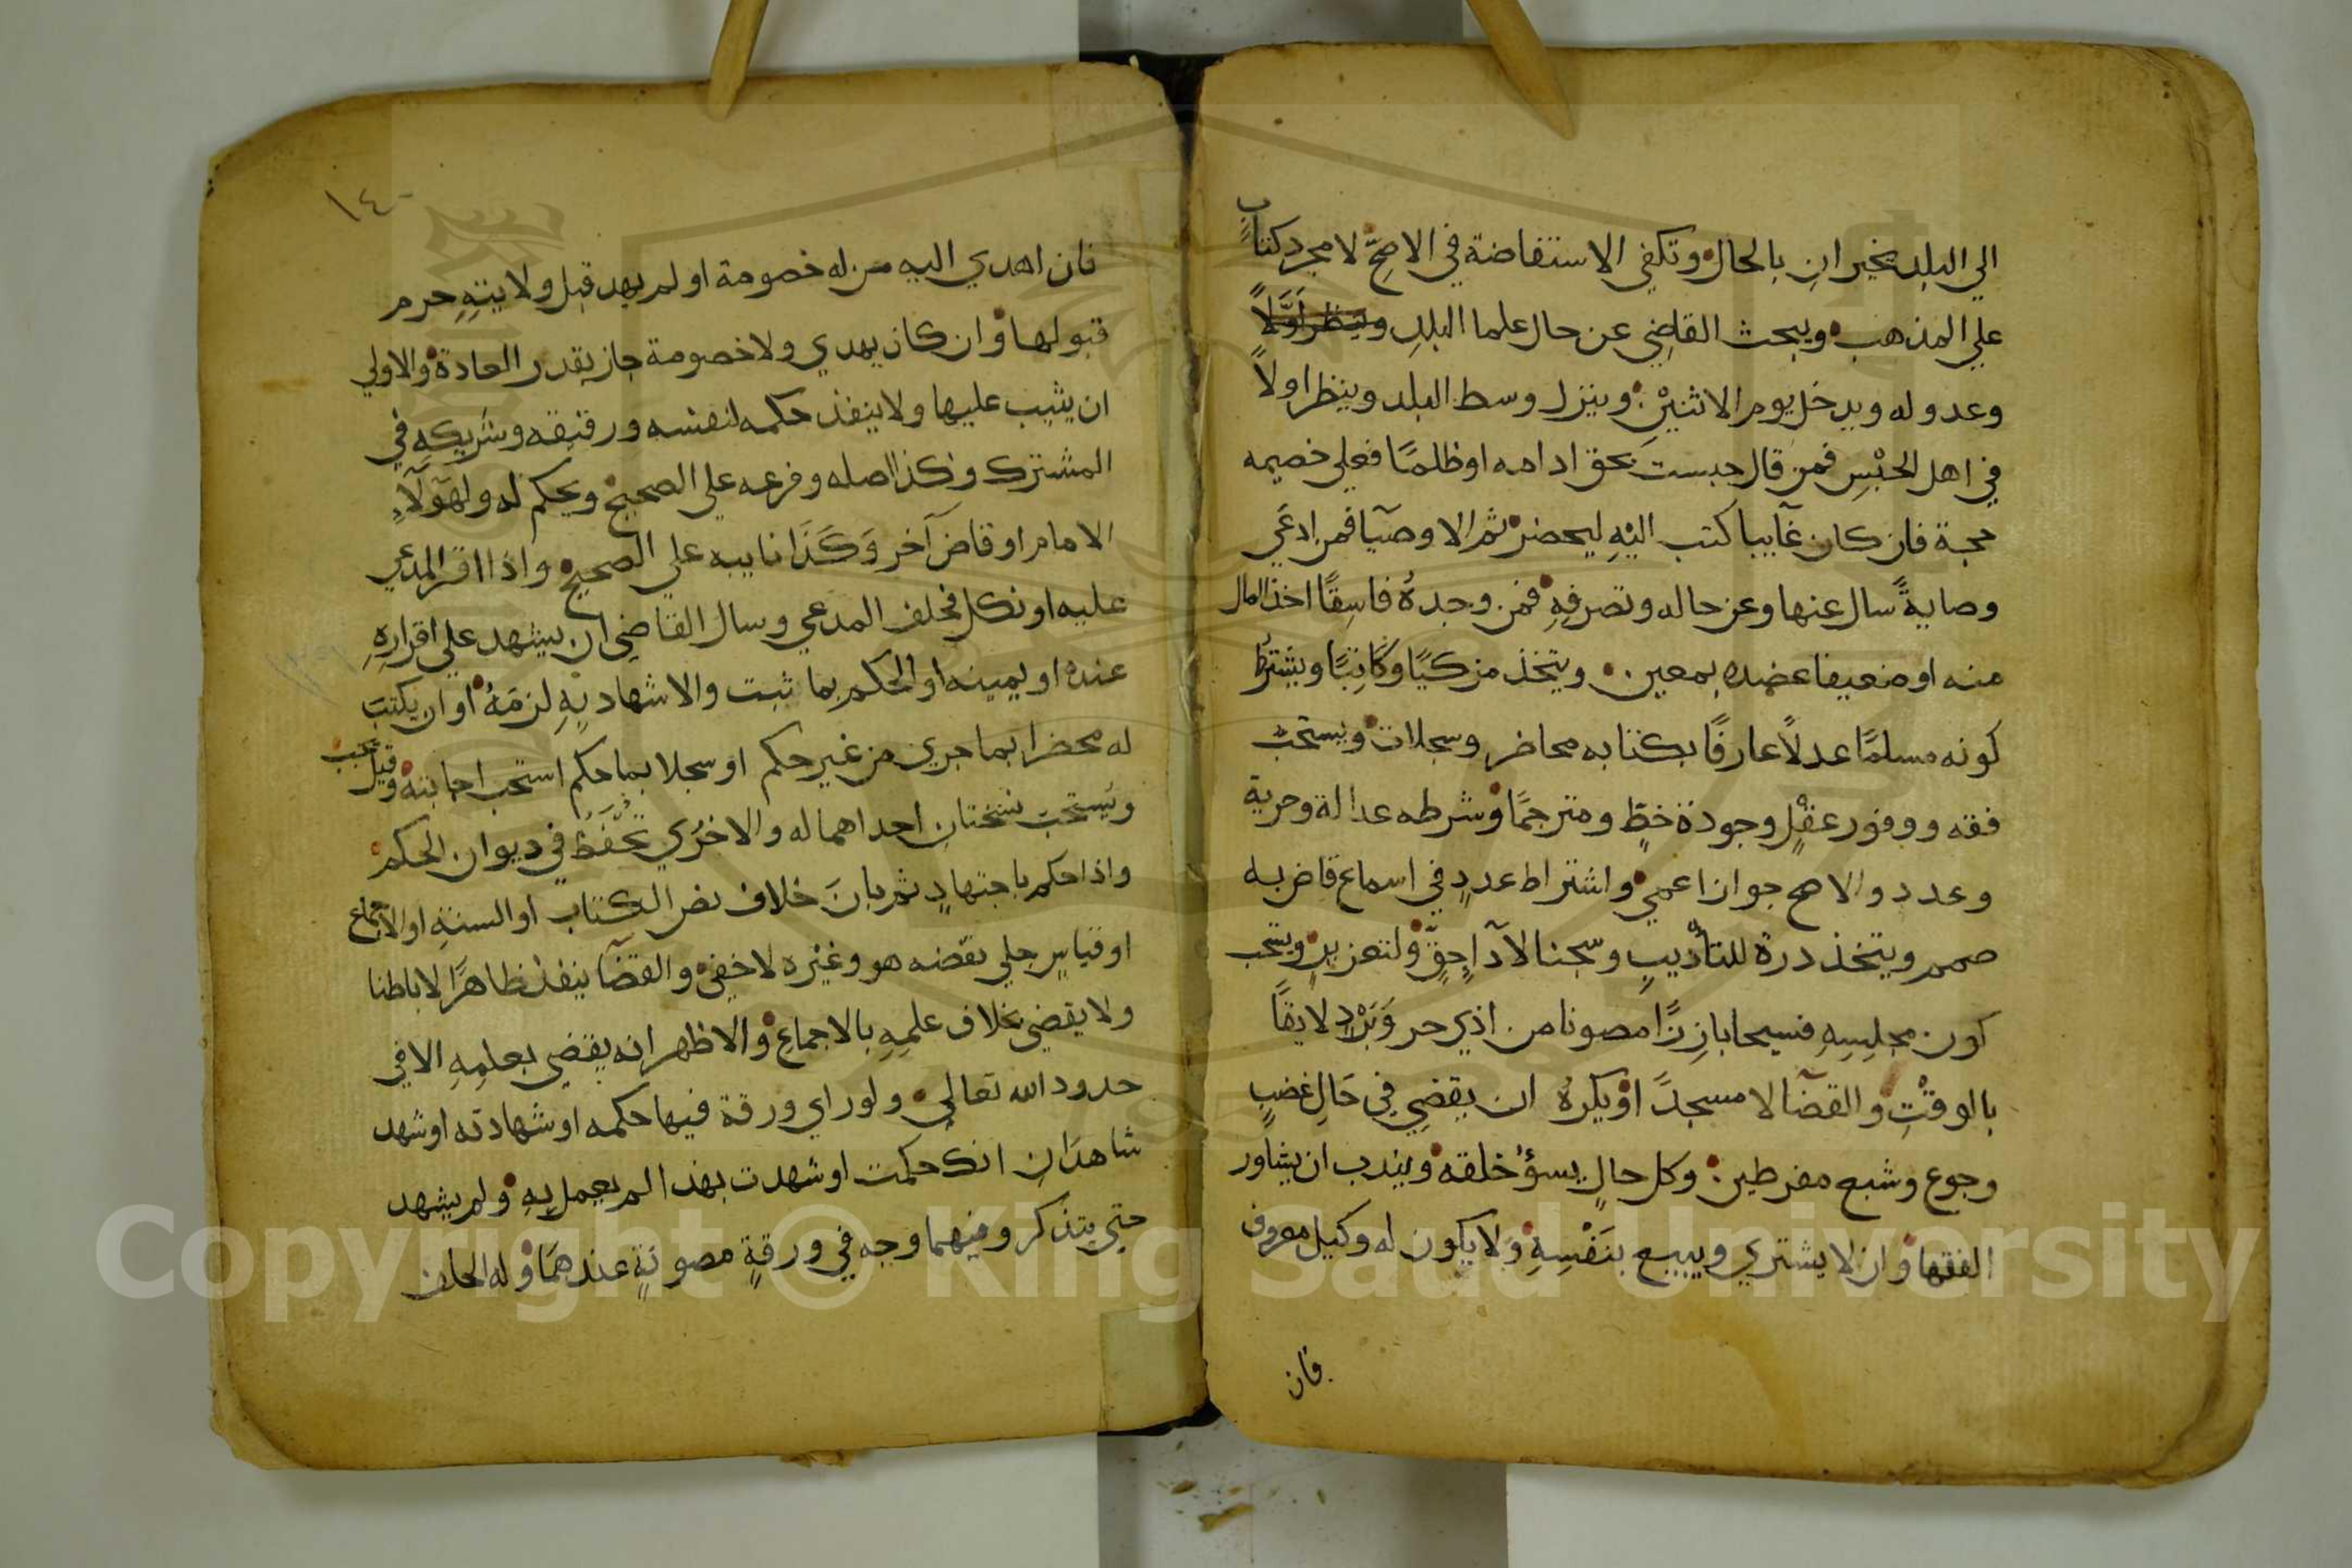 الي البلد يخبران بالحال وتكفي الاستفاضة في الاصحّ لا مجرد كتابٍ
علي المذهب ويبحث القاضي عن حال علما البلدِ وينظر اوَّلاً
وعدوله ويدخل يوم الاثنيْنِ وينزل وسط البلد وينظر اولاً
في اهل الحبْسِ فمن قال حبست بحق ادامه او ظلمًا فعلي خصيمه
حجة فان كان غآيبا كتب اليْهِ ليحضر ثم الاوصيَآ فمن ادعَي
وصايةً سال عنها وعن حاله وتصرفِهِ فمن وجدهُ فاسِقًا اخذ المال
منه او ضعيفا عضده بمعين ويتخذ مزكيًا وكَاتِبًا ويشترط
كونه مسلمًا عدلاً عارفًا بكتابه محاضر وسجلات ويستحبّ
فقه ووفور عقلٍ وجودة خطٍّ ومترجمًا وشرطه عدالة وحرية
وعدد والاصح جواز اعمي واشتراط عددٍ في اسماع قاض به
صمم ويتخذ درة للتأديبِ وسجنا لآدآ حِقٍّ ولتعزيرٍ ويستحب
كون مجلِسِهِ فسيحا بارِزًا مصونا من اذي حر وَبَرْدٍ لايقًا
بالوقْتِ والقضَآ لا مسجدً اوْ يكرهُ ان يقضِي في حَالِ غضبٍ
وجوع وشبع مفرطين وكل حالٍ يسؤُ خلقه ويندب ان يشاور
الفقها وان لا يشتري ويبيع بنَفْسِهِ وَلا يكون له وكيل معروف
فان
١٤٠
فان اهدي اليه من له خصومة او لم يهد قبل ولايتِهِ حرم
قبولها وان كان يهدي ولا خصومة جاز بقدر العادة والاولي
ان يثيب عليها ولا ينفذ حكمه لنفسه ورقيقه وشريكِهِ في
المشترك وكذا اصله وفرعه علي الصحيح ويحكم له ولهَوُلَآءِ
الامام او قاض آخر وَكَذَا نايبه علي الصحيح واذا اقر المدعي
عليه او نكل فحلف المدعي وسال القاضِي ان يشهد علي اقرارِهِ
عنده او يمينه او الحكم بما ثبت والاشهاد بِهِ لزمَهُ او ان يكتبَ
له محضرا بما جري من غير حكم او سجلا بما حكم استحب اجابته وقيل يجب
ويُستحبّ نسختان احداهما له والاخرَي تُحْفَظُ في ديوان الحكم
واذا حكم باجتهادٍ ثم بانَ خلاف نص الكتابِ او السنةِ او الاجماع
او قياسٍ جلي نقضه هو وغيْره لا خفِي والقضَآ ينفذ ظاهرًا لا باطنا
ولا يقضي بخلاف علمِهِ بالاجماعِ والاظهر انه يقضي بعلمِهِ الا في
حدود الله تعالي ولو راي ورقة فيها حكمه او شهادته او شهد
شاهدَان انك حكمت او شهدت بهذا لم يعمل بِهِ ولم يشهد
حتي يتذكر وفيهما وجه في ورقةٍ مصونةٍ عندهمَا وله الحلف
Copyright © King Saud University